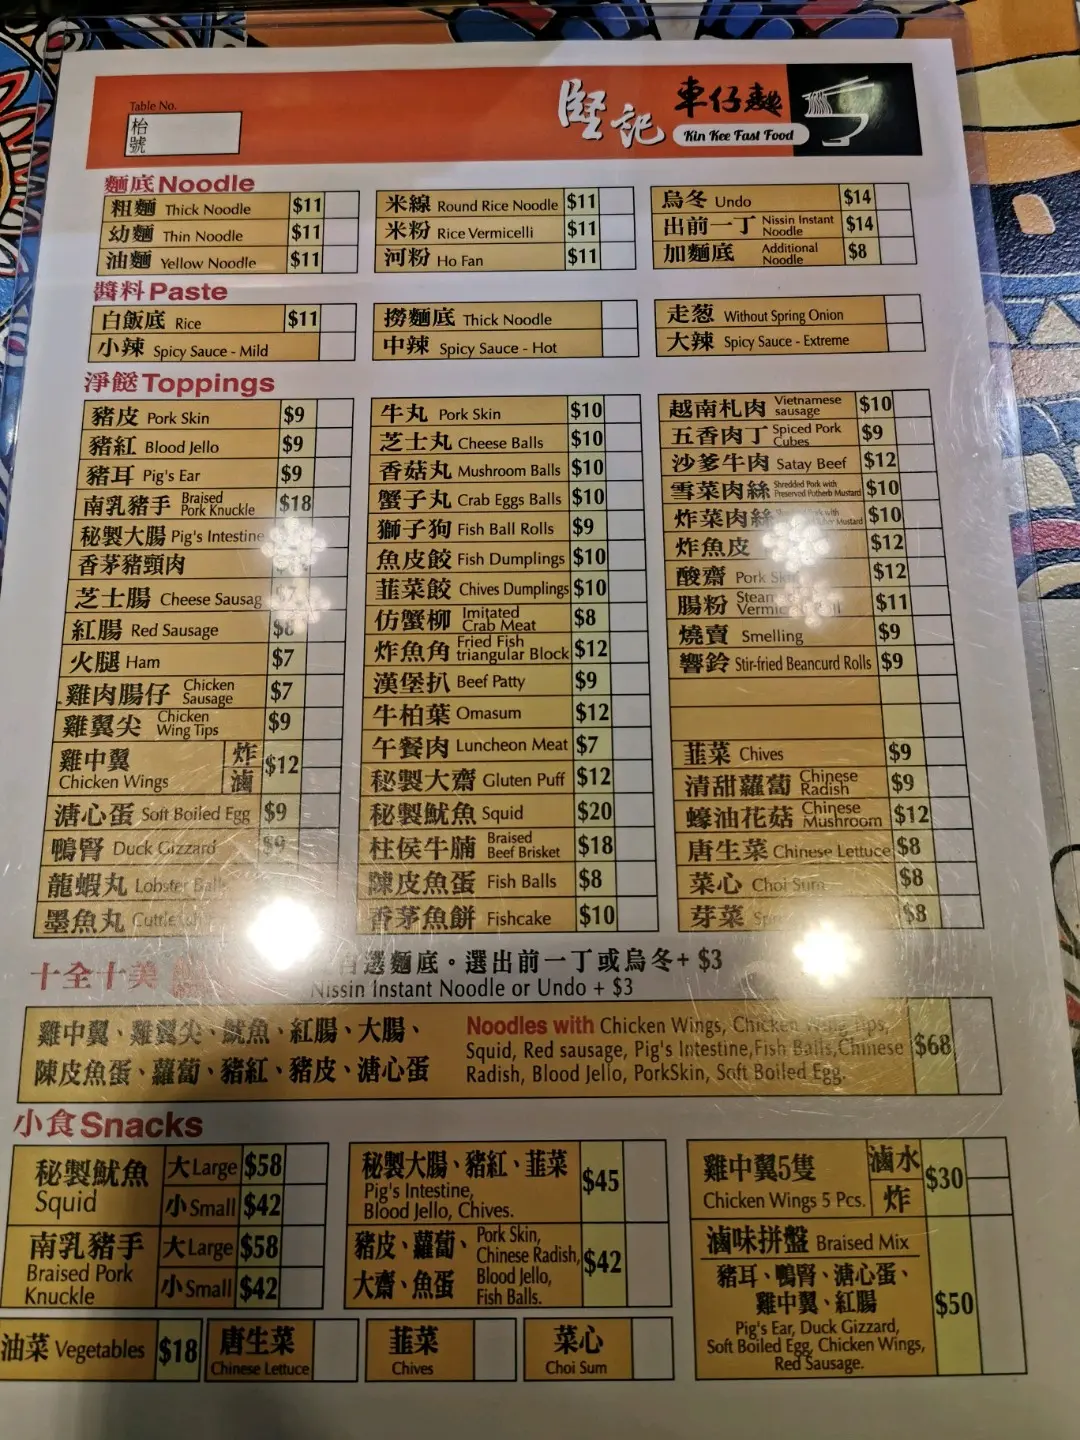 Table No.
枱
號
堅記
車仔麵
Kin Kee Fast Food
麵底 Noodle
粗麵 Thick Noodle $11
幼麵 Thin Noodle $11
油麵 Yellow Noodle $11
米線 Round Rice Noodle $11
米粉 Rice Vermicelli $11
河粉 Ho Fan $11
烏冬 Undo $14
出前一丁 Nissin Instant Noodle $14
加麵底 Additional Noodle $8
醬料 Paste
白飯底 Rice $11
小辣 Spicy Sauce - Mild
撈麵底 Thick Noodle
中辣 Spicy Sauce - Hot
走葱 Without Spring Onion
大辣 Spicy Sauce - Extreme
淨餸 Toppings
豬皮 Pork Skin $9
豬紅 Blood Jello $9
豬耳 Pig's Ear $9
南乳豬手 Braised Pork Knuckle $18
秘製大腸 Pig's Intestine
香茅豬頸肉
芝士腸 Cheese Sausag
紅腸 Red Sausage $8
火腿 Ham $7
雞肉腸仔 Chicken Sausage $7
雞翼尖 Chicken Wing Tips $9
雞中翼 Chicken Wings 炸 滷 $12
溏心蛋 Soft Boiled Egg $9
鴨腎 Duck Gizzard $9
龍蝦丸 Lobster Balls
墨魚丸
牛丸 Pork Skin $10
芝士丸 Cheese Balls $10
香菇丸 Mushroom Balls $10
蟹子丸 Crab Eggs Balls $10
獅子狗 Fish Ball Rolls $9
魚皮餃 Fish Dumplings $10
韮菜餃 Chives Dumplings $10
仿蟹柳 Imitated Crab Meat $8
炸魚角 Fried Fish triangular Block $12
漢堡扒 Beef Patty $9
牛柏葉 Omasum $12
午餐肉 Luncheon Meat $7
秘製大齋 Gluten Puff $12
秘製魷魚 Squid $20
柱侯牛腩 Braised Beef Brisket $18
陳皮魚蛋 Fish Balls $8
香茅魚餅 Fishcake $10
越南札肉 Vietnamese sausage $10
五香肉丁 Spiced Pork Cubes $9
沙爹牛肉 Satay Beef $12
雪菜肉絲 Shredded Pork with Preserved Potherb Mustard $10
炸菜肉絲 Mustard $10
炸魚皮 $12
酸齋 Pork $12
腸粉 $11
燒賣 Smelling $9
響鈴 Stir-fried Beancurd Rolls $9
韮菜 Chives $9
清甜蘿蔔 Chinese Radish $9
蠔油花菇 Chinese Mushroom $12
唐生菜 Chinese Lettuce $8
菜心 Choi Sum $8
芽菜 $8
十全十美
自選麵底。選出前一丁或烏冬+ $3
Nissin Instant Noodle or Undo + $3
雞中翼、雞翼尖、魷魚、紅腸、大腸、
陳皮魚蛋、蘿蔔、豬紅、豬皮、溏心蛋
Noodles with Chicken Wings, Chicken Wing Tips,
Squid, Red sausage, Pig's Intestine,Fish Balls,Chinese
Radish, Blood Jello, PorkSkin, Soft Boiled Egg.
$68
小食 Snacks
秘製魷魚 Squid
大 Large $58
小 Small $42
南乳豬手 Braised Pork Knuckle
大 Large $58
小 Small $42
秘製大腸、豬紅、韮菜
Pig's Intestine,
Blood Jello, Chives.
$45
豬皮、蘿蔔、
大齋、魚蛋
Pork Skin,
Chinese Radish,
Blood Jello,
Fish Balls.
$42
雞中翼5隻
Chicken Wings 5 Pcs.
滷水
炸
$30
滷味拼盤 Braised Mix
豬耳、鴨腎、溏心蛋、
雞中翼、紅腸
Pig's Ear, Duck Gizzard,
Soft Boiled Egg, Chicken Wings,
Red Sausage.
$50
油菜 Vegetables $18
唐生菜
Chinese Lettuce
韮菜
Chives
菜心
Choi Sum